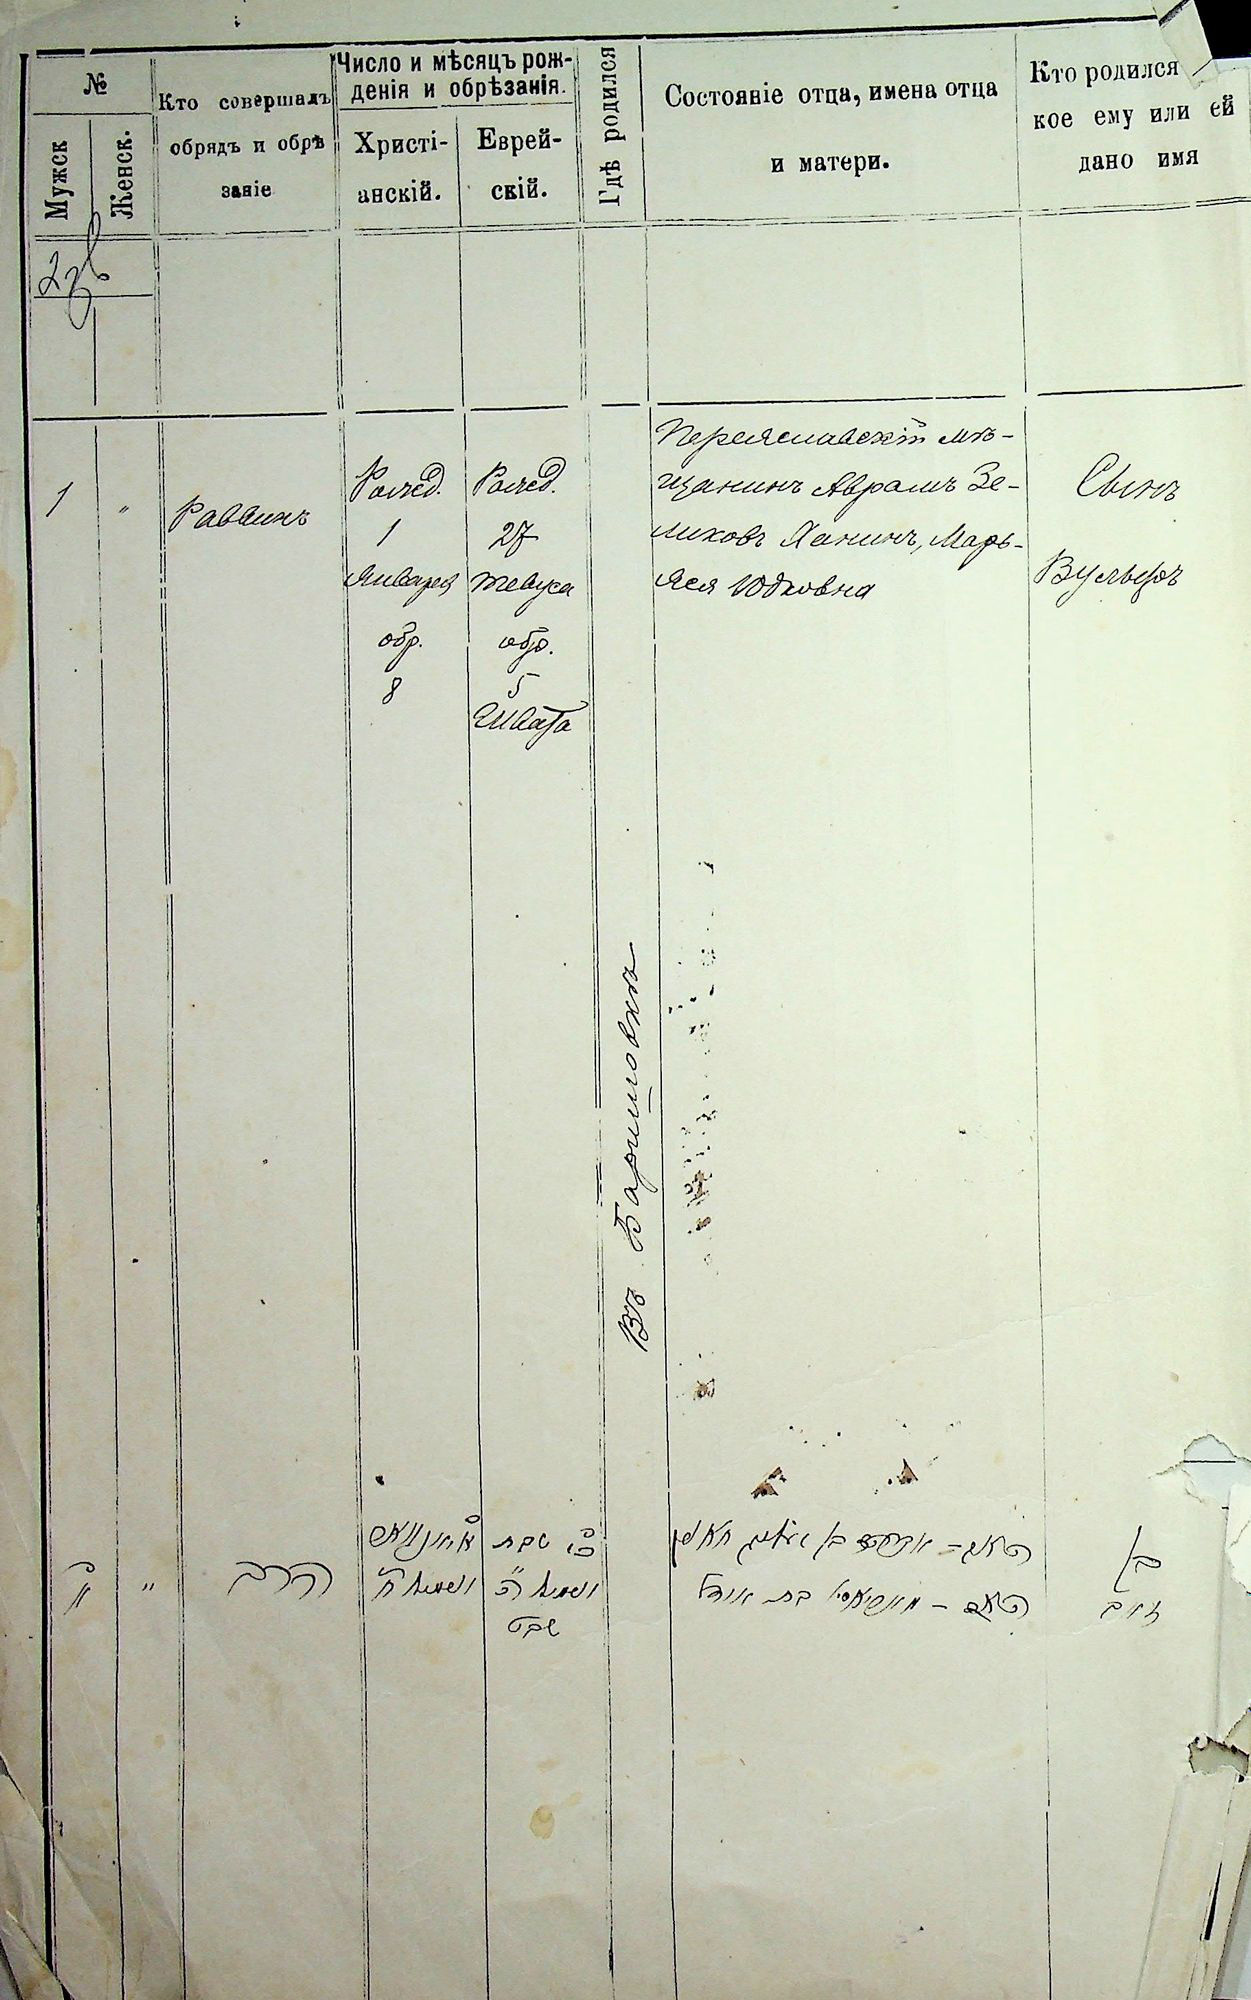 №
Мужск
Женск.
Кто совершалъ
обрядъ и обрѣ
заніе
Число и мѣсяцъ рож-
денія и обрѣзанія.
Христі-
анскій.
Еврей-
скій.
Гдѣ родился
Состояніе отца, имена отца
и матери.
Кто родился
кое ему или ей
дано имя
1
"
Раввинъ
Рожд.
1
Января
обр.
8
Рожд.
27
тевуса
обр.
5
Швата
Въ Баришовкѣ
Переяславскій мѣ-
щанинъ Аврамъ Зе-
ликовъ Ханинъ, Марь-
Яся Юдковна
Сынъ
Вульфъ
"
הרב
שבט
בן